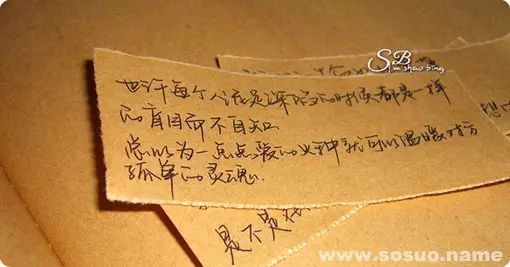 也许每个人深陷的时候都是一样
的盲目而不自知
总以为一点点爱的火种就可以温暖对方
孤单的灵魂.
想
是不是
www.sosuo.name